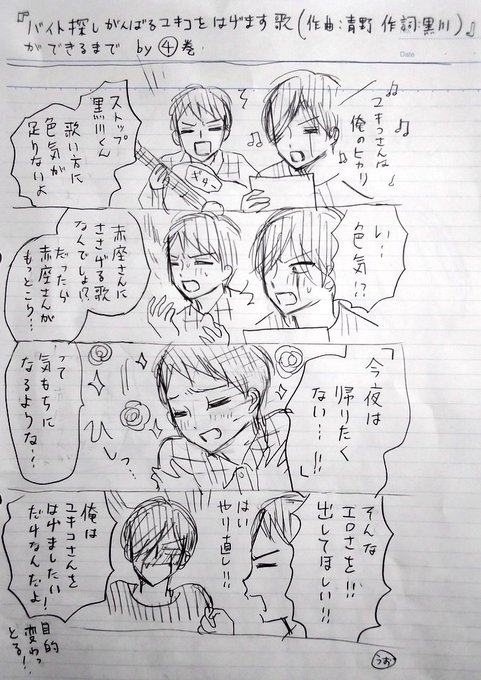 『バイト探しがんばるユキコをはげます歌(作曲:青野 作詞:黒川)』
ができるまで by ④巻
Date
ユキコさんは
俺のヒカリ
ストップ
黒川くん
歌い方に
色気が
足りないよ
ギター
い…
色気!?
赤座さんに
ささげる歌
なんでしょ!?
だったら
赤座さんが
もっとこう…
「今夜は
帰りたく
ない…!!」
ヒしっ…
って
気もちに
なるような…!
そんな
エロさを!!
出してほしい!!
はい
やり直し!!
俺は
ユキコさんを
はげましたい!
だけなんだよ!
目的
変わっ
とる!
うお